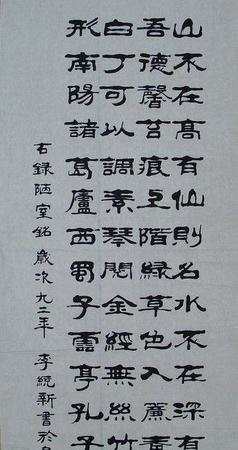 山不在高有仙則名水不在深有
吾德馨苔痕上階緑草色入簾青
白丁可以調素琴閱金經無絲竹
形南陽諸葛廬西蜀子雲亭孔子
右録陋室銘 歲次九二年 李統新書於